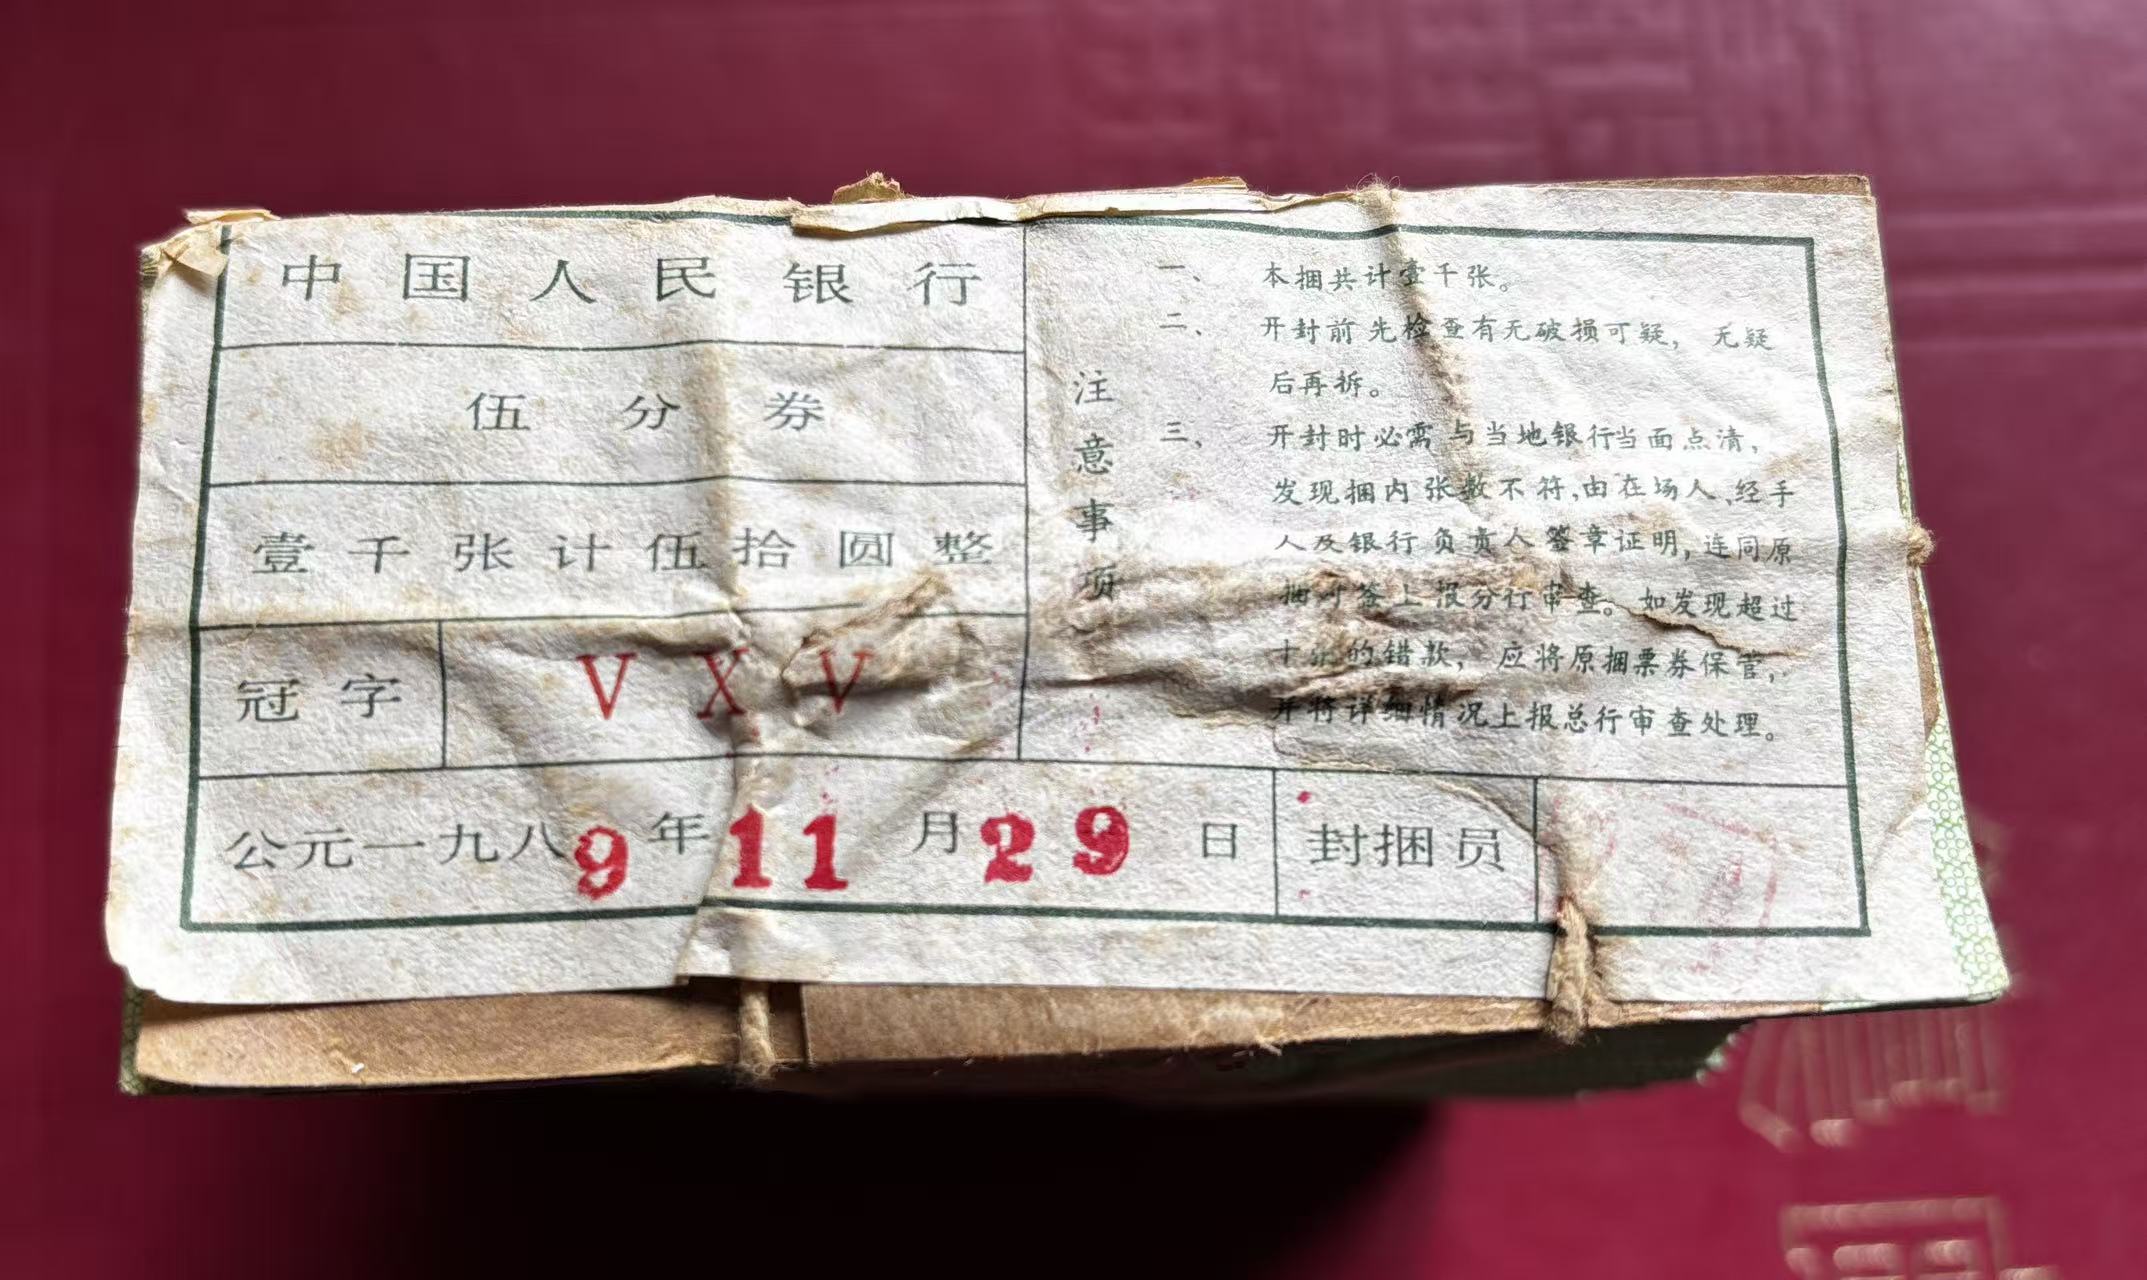 中国人民银行
伍分券
壹千张计伍拾圆整
冠字 VXV
公元一九八9年11月29日
封捆员
注意事项
一、本捆共计壹千张。
二、开封前先检查有无破损可疑，无疑
后再拆。
三、开封时必需与当地银行当面点清，
发现捆内张数不符，由在场人、经手
人及银行负责人签章证明，连同原
捆封签上报分行审查。如发现超过
十张的错款，应将原捆票券保管，
并将详细情况上报总行审查处理。